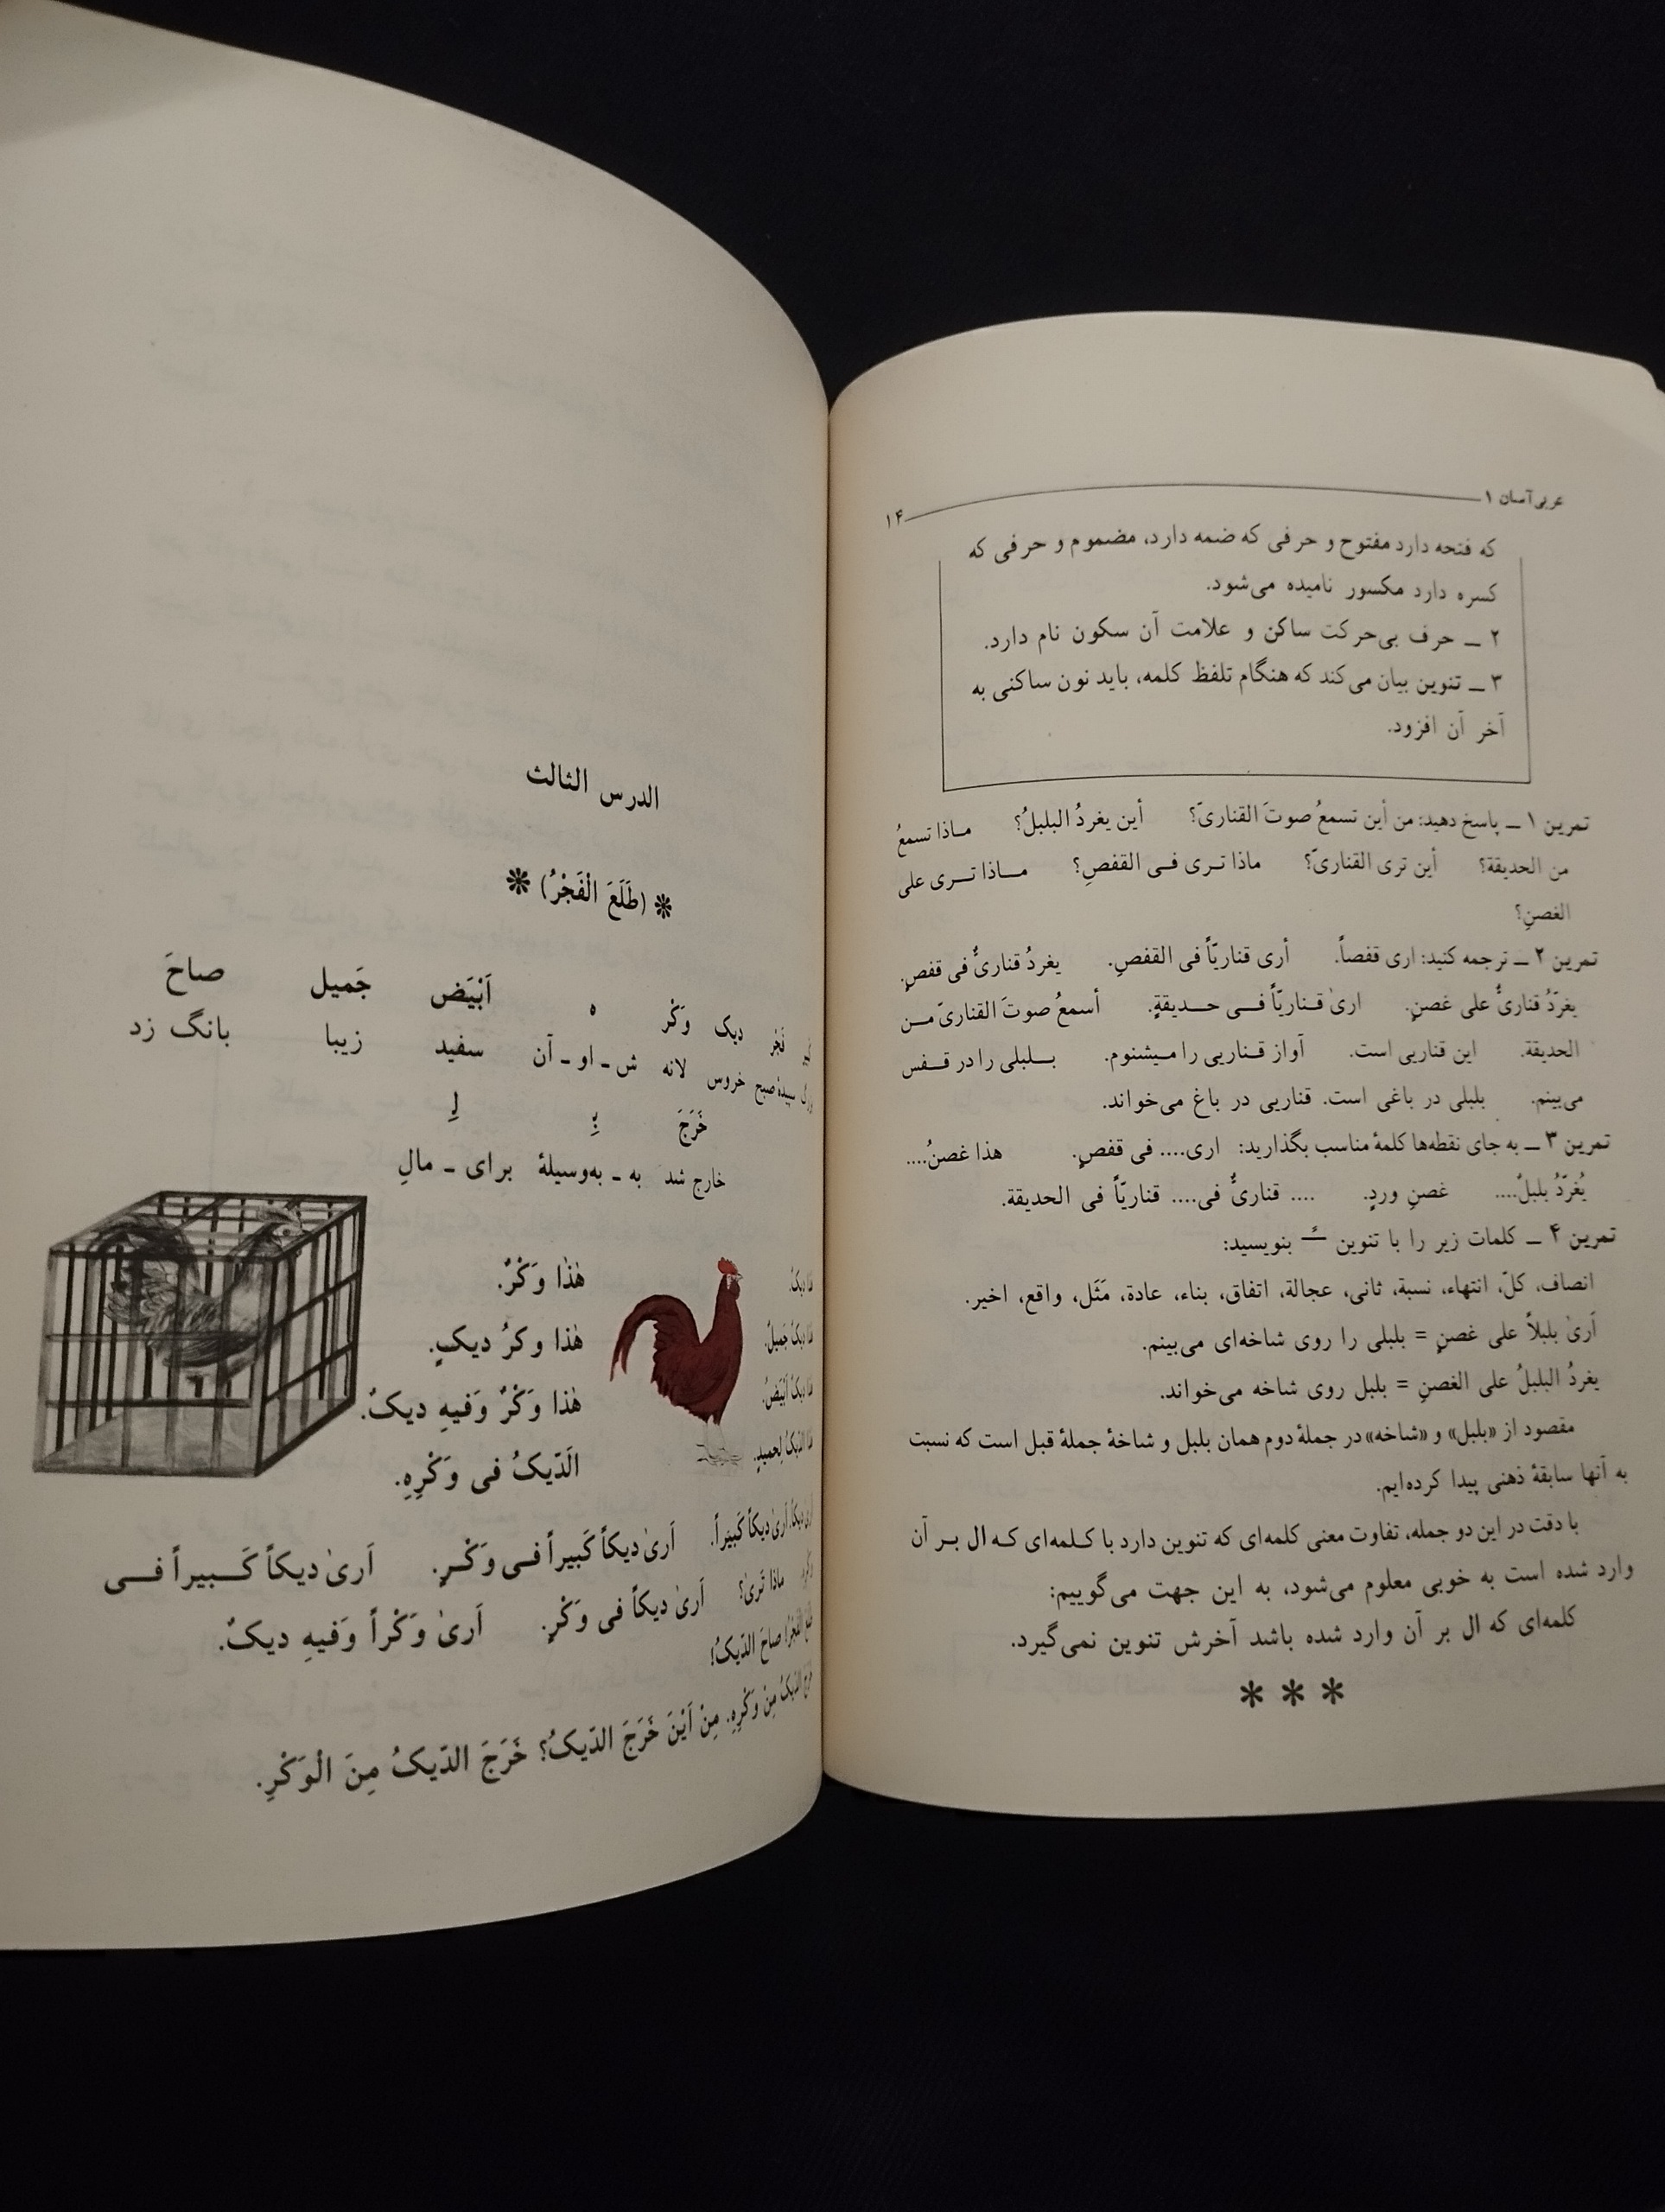 عربی آسان ۱
۱۴
که فتحه دارد مفتوح و حرفی که ضمه دارد، مضموم و حرفی که
کسره دارد مکسور نامیده می‌شود.
۲ ــ حرف بی‌حرکت ساکن و علامت آن سکون نام دارد.
۳ ــ تنوین بیان می‌کند که هنگام تلفظ کلمه، باید نون ساکنی به
آخر آن افزود.
تمرین ۱ ــ پاسخ دهید: من أین تسمعُ صوتَ القناریّ؟ أین یغردُ البلبلُ؟ ماذا تسمعُ
من الحدیقة؟ أین تری القناریّ؟ ماذا تری فی القفصِ؟ ماذا تری علی
الغصنِ؟
تمرین ۲ ــ ترجمه کنید: اری قفصاً. أری قناریّاً فی القفصِ. یغردُ قناریٌّ فی قفصٍ.
یغرّدُ قناریٌّ علی غصنٍ. اریٰ قناریّاً فی حدیقةٍ. أسمعُ صوتَ القناریّ من
الحدیقة. این قناریی است. آواز قناریی را میشنوم. بلبلی را در قفس
می‌بینم. بلبلی در باغی است. قناریی در باغ می‌خواند.
تمرین ۳ ــ به جای نقطه‌ها کلمهٔ مناسب بگذارید: اری.... فی قفصٍ. هذا غصنُ....
یُغرّدُ بلبلٌ.... غصنِ وردٍ. .... قناریٌّ فی.... قناریّاً فی الحدیقة.
تمرین ۴ ــ کلمات زیر را با تنوین ـًـ بنویسید:
انصاف، کلّ، انتهاء، نسبة، ثانی، عجالة، اتفاق، بناء، عادة، مَثَل، واقع، اخیر.
اَریٰ بلبلاً علی غصنٍ = بلبلی را روی شاخه‌ای می‌بینم.
یغردُ البلبلُ علی الغصنِ = بلبل روی شاخه می‌خواند.
مقصود از «بلبل» و «شاخه» در جملهٔ دوم همان بلبل و شاخهٔ جملهٔ قبل است که نسبت
به آنها سابقهٔ ذهنی پیدا کرده‌ایم.
با دقت در این دو جمله، تفاوت معنی کلمه‌ای که تنوین دارد با کلمه‌ای که ال بر آن
وارد شده است به خوبی معلوم می‌شود، به این جهت می‌گوییم:
کلمه‌ای که ال بر آن وارد شده باشد آخرش تنوین نمی‌گیرد.
* * *
الدرس الثالث
* (طَلَعَ الْفَجْرُ) *
فَجْر دیک وَکْر ه اَبْیَض جَمیل صاحَ
سپیدهٔ صبح خروس لانه ش ـ او ـ آن سفید زیبا بانگ زد
خَرَجَ بِـ لِـ
خارج شد به ـ به‌وسیلهٔ برای ـ مالِ
هٰذا دیکٌ. هٰذا وَکْرٌ.
هٰذا دیکٌ جَمیلٌ. هٰذا وکرُ دیکٍ.
هٰذا دیکٌ اَبْیَضُ. هٰذا وَکْرٌ وَفیهِ دیکٌ.
هٰذا الدّیکُ لِحمیدٍ. اَلدّیکُ فی وَکْرِهِ.
اَریٰ دیکاً. اَریٰ دیکاً کَبیراً. اَریٰ دیکاً کَبیراً فی وَکْرٍ. اَریٰ دیکاً کَبیراً فی
وَکْرِهِ. ماذا تَریٰ؟ اَریٰ دیکاً فی وَکْرٍ. اَریٰ وَکْراً وَفیهِ دیکٌ.
طَلَعَ الْفَجْرُ! صاحَ الدّیکُ!
خَرَجَ الدّیکُ مِنْ وَکْرِهِ. مِنْ اَیْنَ خَرَجَ الدّیکُ؟ خَرَجَ الدّیکُ مِنَ الْوَکْرِ.